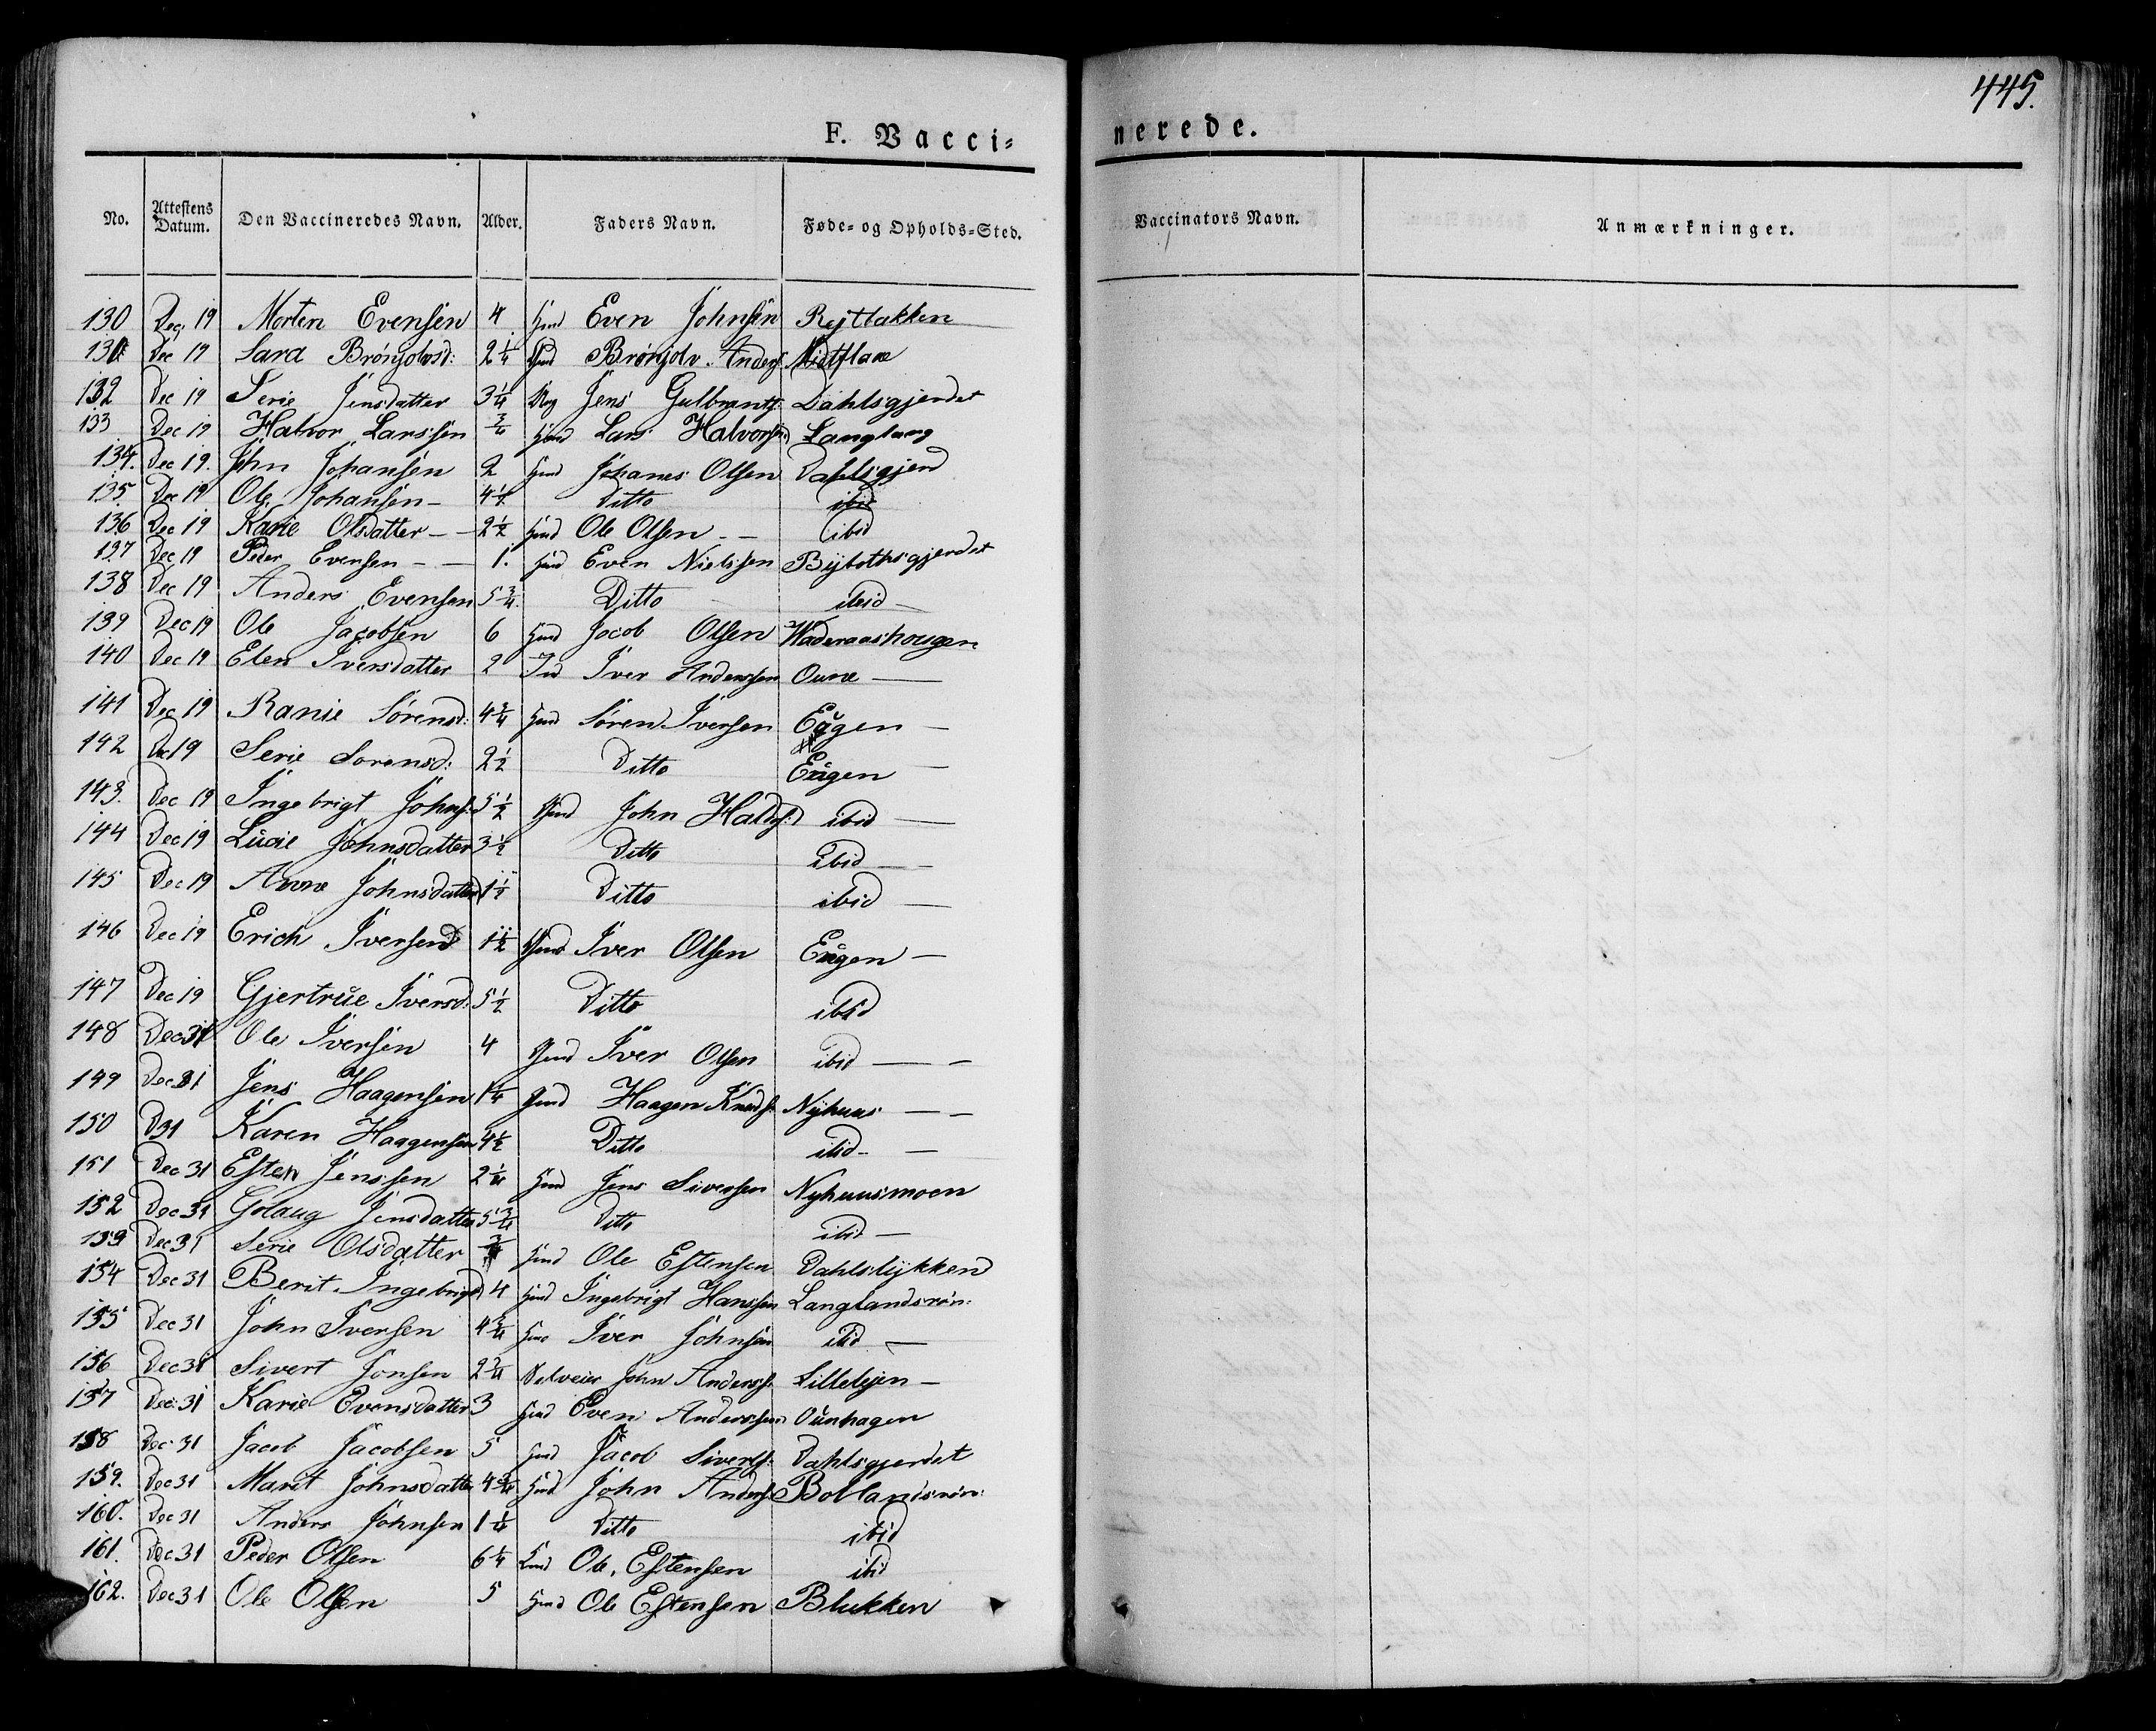 445.
F. Vacci=
nerede.
No. Attestens Datum. Den Vaccineredes Navn. Alder. Faders Navn. Føde- og Opholds-Sted. Vaccinators Navn. Anmærkninger.
130 Dec. 19 Morten Evensen 4 Huusmd Even Johnsen
131 Dec 19 Brønjolvsd: 2 1/4 Brønjolv Anders. Midtflaae
132 Dec 19 Serie Jensdatter 3 1/4 Jens Gulbrants. Dahlsgjerdet
133 Dec 19 Halvor Larssen 3/4 Lars Halvorsen
134. Dec 19. John Johansen 2 Johanes Olsen Dahlsgjerd
135 Dec 19 Ole Johansen - 4 1/2 Ditto ibid
136 Dec 19 Karie Olsdatter - - 2 1/2 Ole Olsen - - ibid
137 Dec 19 Peder Evensen - - 1. Even Nielssen
138 Dec 19 Anders Evensen 5 3/4. Ditto ibid -
139 Dec 19 Ole Jacobsen 6 Jacob Olsen
140 Dec 19 Elen Iversdatter 2 Iver Anderssen Oune -
141 Dec 19 Ranie Sørensd: 4 3/4 Søren Iversen Engen -
142 Dec 19 Serie Sorensd: 2 1/2 Ditto Engen -
143. Dec 19 Ingebrigt Johns. 5 1/2 John ibid -
144 Dec 19 Lucie Johnsdatter 3 1/2 Ditto ibid -
145 Dec 19 Anne Johnsdatter 1 1/2 Ditto ibid -
146 Dec 19 Erich Iversen 1 1/2 Iver Olsen Engen -
147 Dec 19 Gjertrue Iversd: 5 1/2 Ditto ibid
148 Dec 31 Ole Iversen 4 Iver Olsen ibid - -
149 Dec 31 Jens Haagensen 1 1/4 Haagen Knuds. Nyhuus - -
150 D 31 Karen Haagensen 4 1/2 Ditto ibid - -
151 Dec 31 Esten Jenssen 2 1/4 Jens Siversen Nyhuusmoen
152 Dec 31 Golaug Jensdatter 5 3/4 Ditto ibid -
153 Dec 31 Serie Olsdatter 3/4 Ole Estensen Dahlslykken
154 Dec 31 Berit Ingebrigtsd 4 Ingebrigt Hanssen Langlandsrøn:
155 Dec 31 John Iversen 4 3/4 Iver Johnsen ibid -
156 Dec 31 Sivert Jonsen 2 3/4 John Anderss. -
157 Dec 31 Karie Evensdatter 3 Even Anderssen Ounhagen
158 Dec 31 Jacob Jacobsen 5 Jacob Siverts. Dahlsgjerdet
159. Dec 31 Marit Johnsdatter 4 3/4 John Anders. Bollandsrøn:
160. Dec 31 Anders Johnsen 1 1/4 Ditto ibid
161. Dec 31 Peder Olsen 6 1/4 Ole Estensen ibid
162. Dec 31 Ole Olsen 5 Ole Estensen Blekken